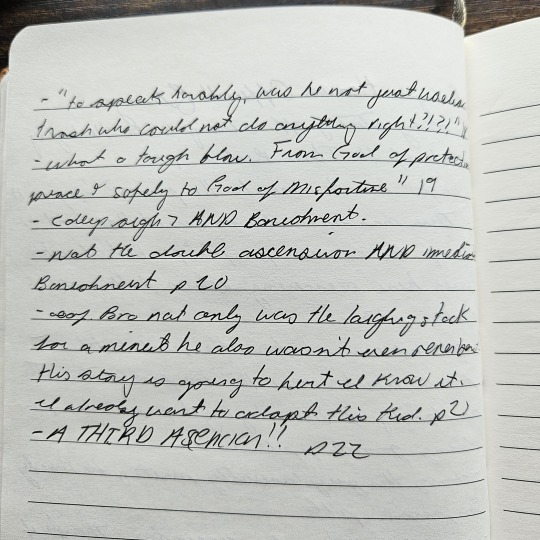 - "to speak harshly, was he not just useless
trash who could not do anything right?!?!"
- what a tough blow. From God of protection
peace & safety to God of Misfortune" 19
- <deep sigh> AND Banishment.
- not the double ascension AND immedia
Banishment p20
- oof Bro not only was the laughing stock
for a minet he also wasn't even remember
this story is going to hurt I know it.
I already want to adopt this kid. p21
- A THIRD Asencion!! p22